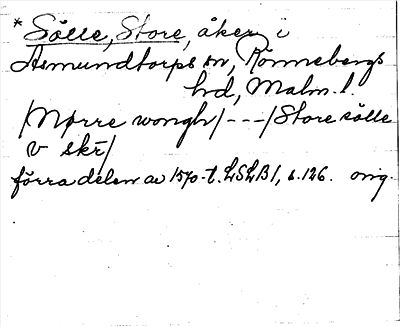 * Sölle, Store, åker i
Asmundtorps sn, Rönnebergs
hd, Malm. l.
/Nørre wongh/ --- /Store sölle
v skr̄/
förra delen av 1570-t. LSLB1, s. 126. orig.